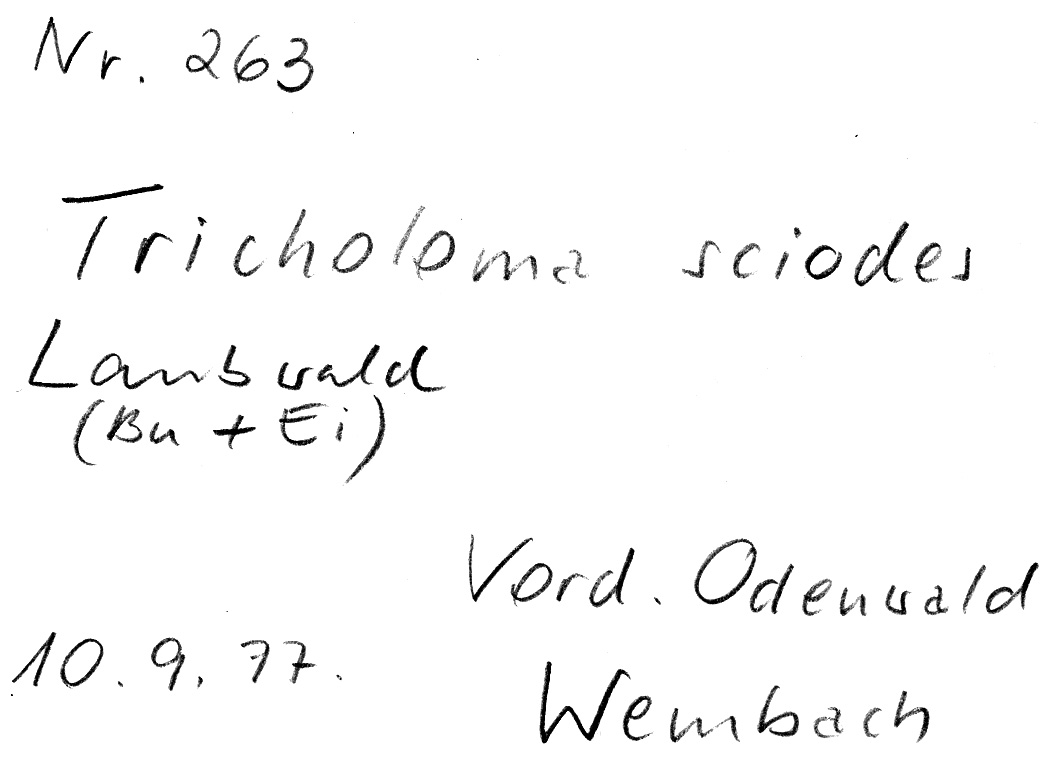 Nr. 263
Tricholoma sciodes
Laubwald
(Bu + Ei)
Vord. Odenwald
10.9.77.
Wembach